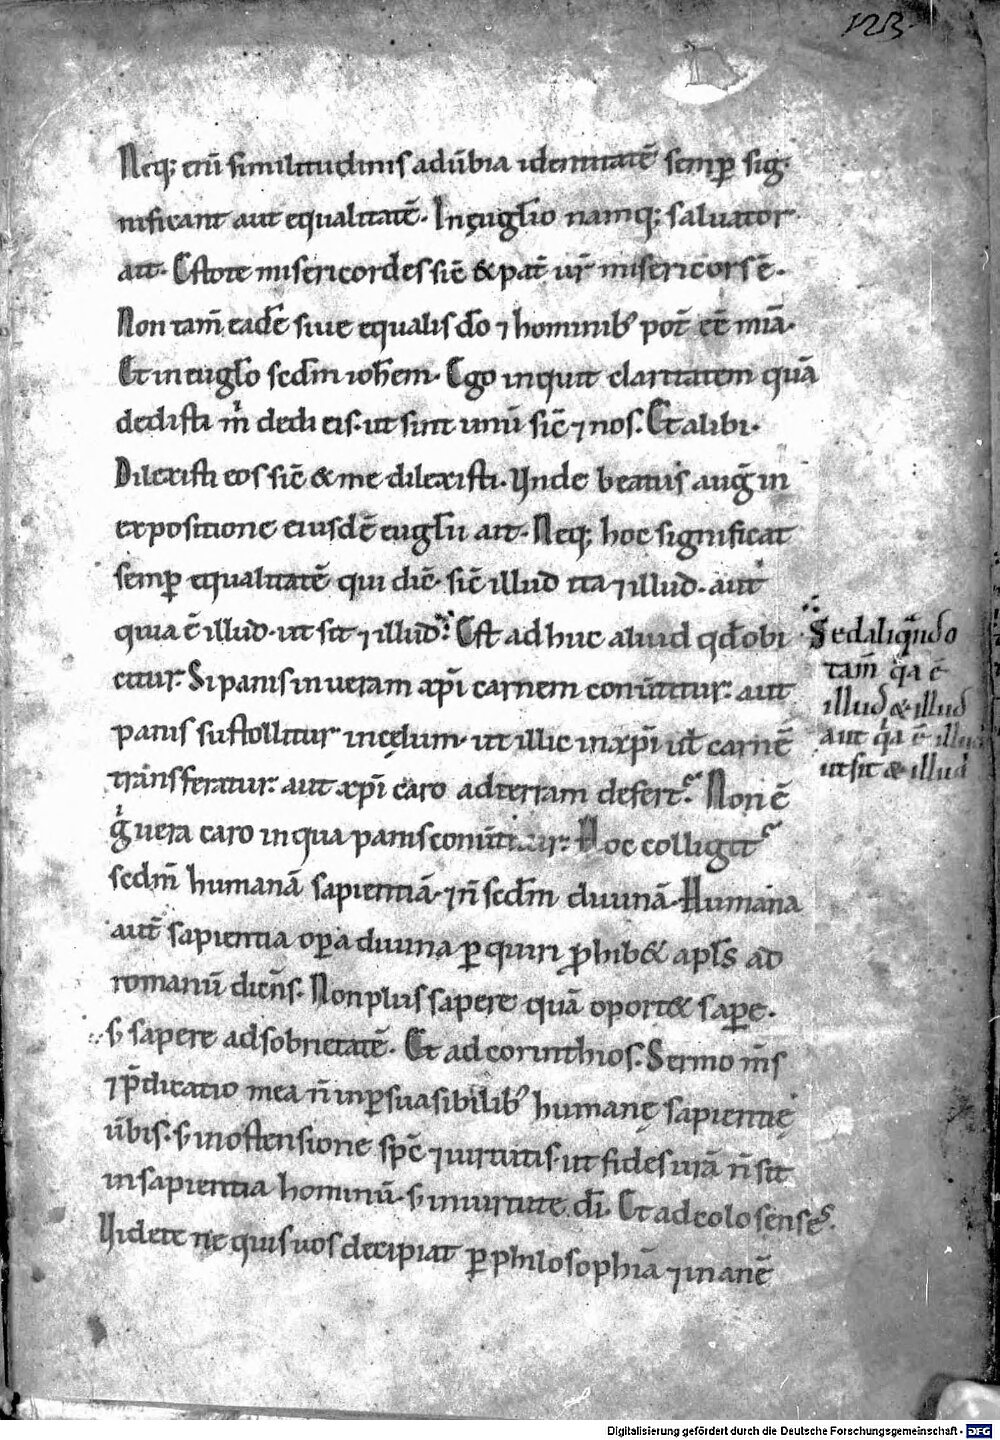 123
Neq; eni̅ similitudinis adu̅bia idemtitate̅ semp̲ sig-
nificant aut equalitate̅. In eug̅lio namq; saluator
ait. Estote misericordes sic̅ & pat̅ ur̅ misericors e̅.
Non tam̅ eade̅ siue equalis d̅o ⁊ hominib᾽ pot̅ ee̅ mi̅a.
Et in eug̅lo scd̅m ioh̅em. Ego inquit claritatem qua̅
dedisti m̅ dedi eis. ut sint unu̅ sic̅ ⁊ nos. Et alibi.
Dilexisti eos sic̅ & me dilexisti. Unde beatus aug̅ in
expositione eiusde̅ eug̅lii ait. Neq; hoc significat
semp̲ equalitate̅ qui dic̅. sic̅ illud ita ⁊ illud. aut
quia e̅ illud. ut sit ⁊ illud. Est adhuc aliud qd̅ obi
citur. Si panis in ueram xp̅i carnem conu̅titur. aut
panis sustollitur in cęlum. ut illic in xp̅i ut̅ carne̅
transferatur. aut xp̅i caro ad terram defert᾽. Non e̅
g̅ uera caro in qua panis conu̅titur. Hoc colligit᾽
scd̅m humana̅ sapientia̅. ⁊ n̅ scd̅m diuina̅. Humana
aut̅ sapientia op̲a diuina p̲quiri p̲hib& apl̅s ad
romanu̅ dicn̅s. Non plus sapere qua̅ oport& sap̲e.
s; sapere ad sobrietate̅. Et ad corinthios. Sermo m̅s
⁊ p̅dicatio mea n̅ in p̲suasibilib᾽ humanę sapientię
u̅bis. s; in ostensione sp̅c ⁊ uirtutis. ut fides ur̅a n̅ sit
in sapientia hominu̅. s; in uirtute d̅i. Et ad colosenses.
Uidete ne quis uos decipiat p̲ philosophia̅ ⁊ inane̅
Sed aliqn̅do
tam̅ q̅a e̅
illud & illud
aut q̅a e̅ illud
ut sit & illud
Digitalisierung gefördert durch die Deutsche Forschungsgemeinschaft - DFG